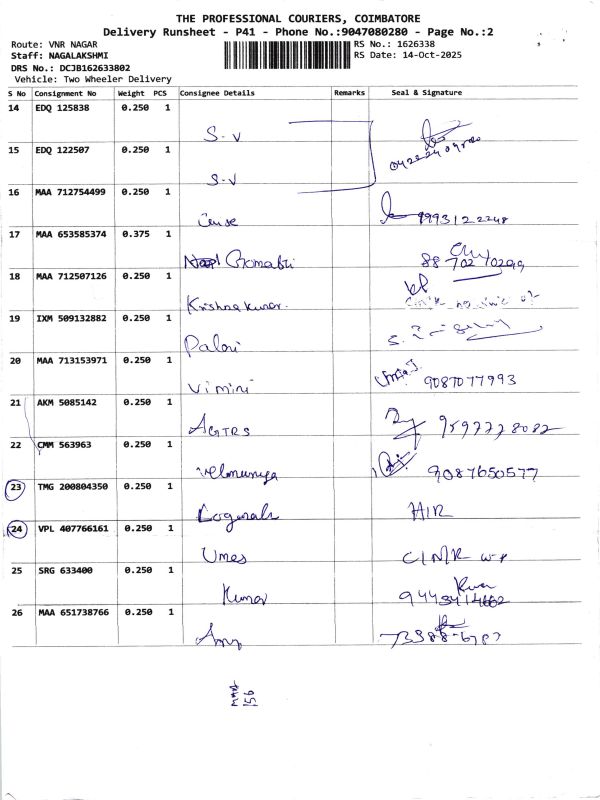 THE PROFESSIONAL COURIERS, COIMBATORE
Delivery Runsheet - P41 - Phone No.:9047080280 - Page No.:2
Route: VNR NAGAR
RS No.: 1626338
Staff: NAGALAKSHMI
RS Date: 14-Oct-2025
DRS No.: DCJB162633802
Vehicle: Two Wheeler Delivery
S No Consignment No Weight PCS Consignee Details Remarks Seal & Signature
14 EDQ 125838 0.250 1
S-V
15 EDQ 122507 0.250 1
S-V
16 MAA 712754499 0.250 1
17 MAA 653585374 0.375 1
Gomathi
18 MAA 712507126 0.250 1
Krishna Kumar.
19 IXM 509132882 0.250 1
Palani
20 MAA 713153971 0.250 1
Vimini 9087077993
21 AKM 5085142 0.250 1
AGTRS
22 CMM 563963 0.250 1
9087650577
23 TMG 200804350 0.250 1
24 VPL 407766161 0.250 1
Umes
25 SRG 633400 0.250 1
Kumar
26 MAA 651738766 0.250 1